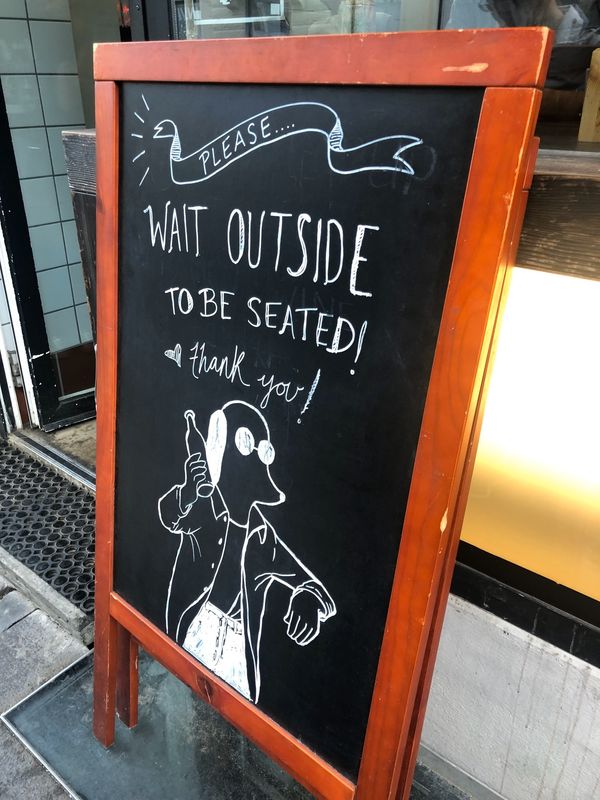 PLEASE....
WAIT OUTSIDE
TO BE SEATED!
thank you!